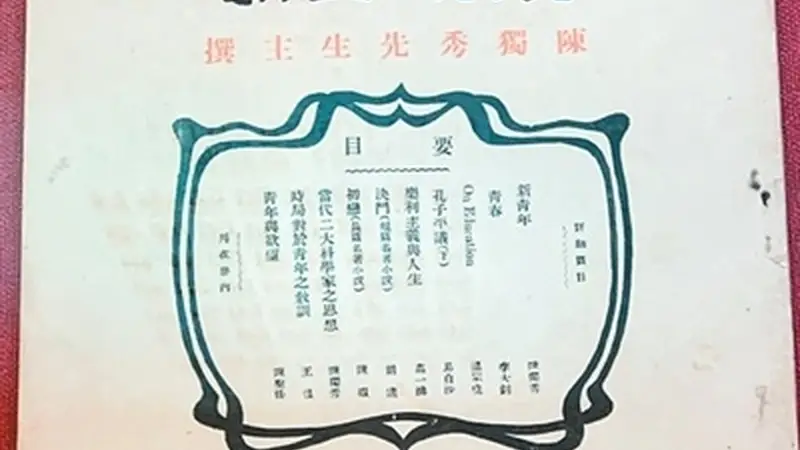 陳獨秀先生主撰
要目
新青年
青春
On Education
孔子平議(下)
樂利主義與人生
決鬥(短篇名著小說)
初戀(長篇名著小說)
當代二大科學家之思想
時局對於青年之教訓
青年與欲望
陳獨秀
李大釗
溫宗堯
易白沙
高一涵
胡適
陳嘏
陳獨秀
王
陳聖任